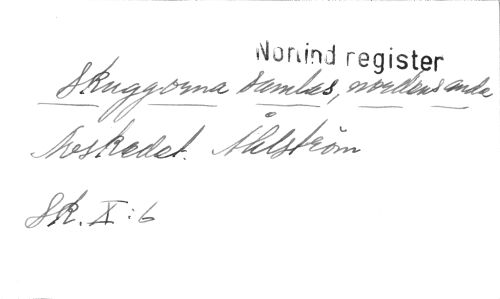 Norlind register
Skuggorna samlas, nordens anda
Avskedet. Åhlström
Sk. X:6